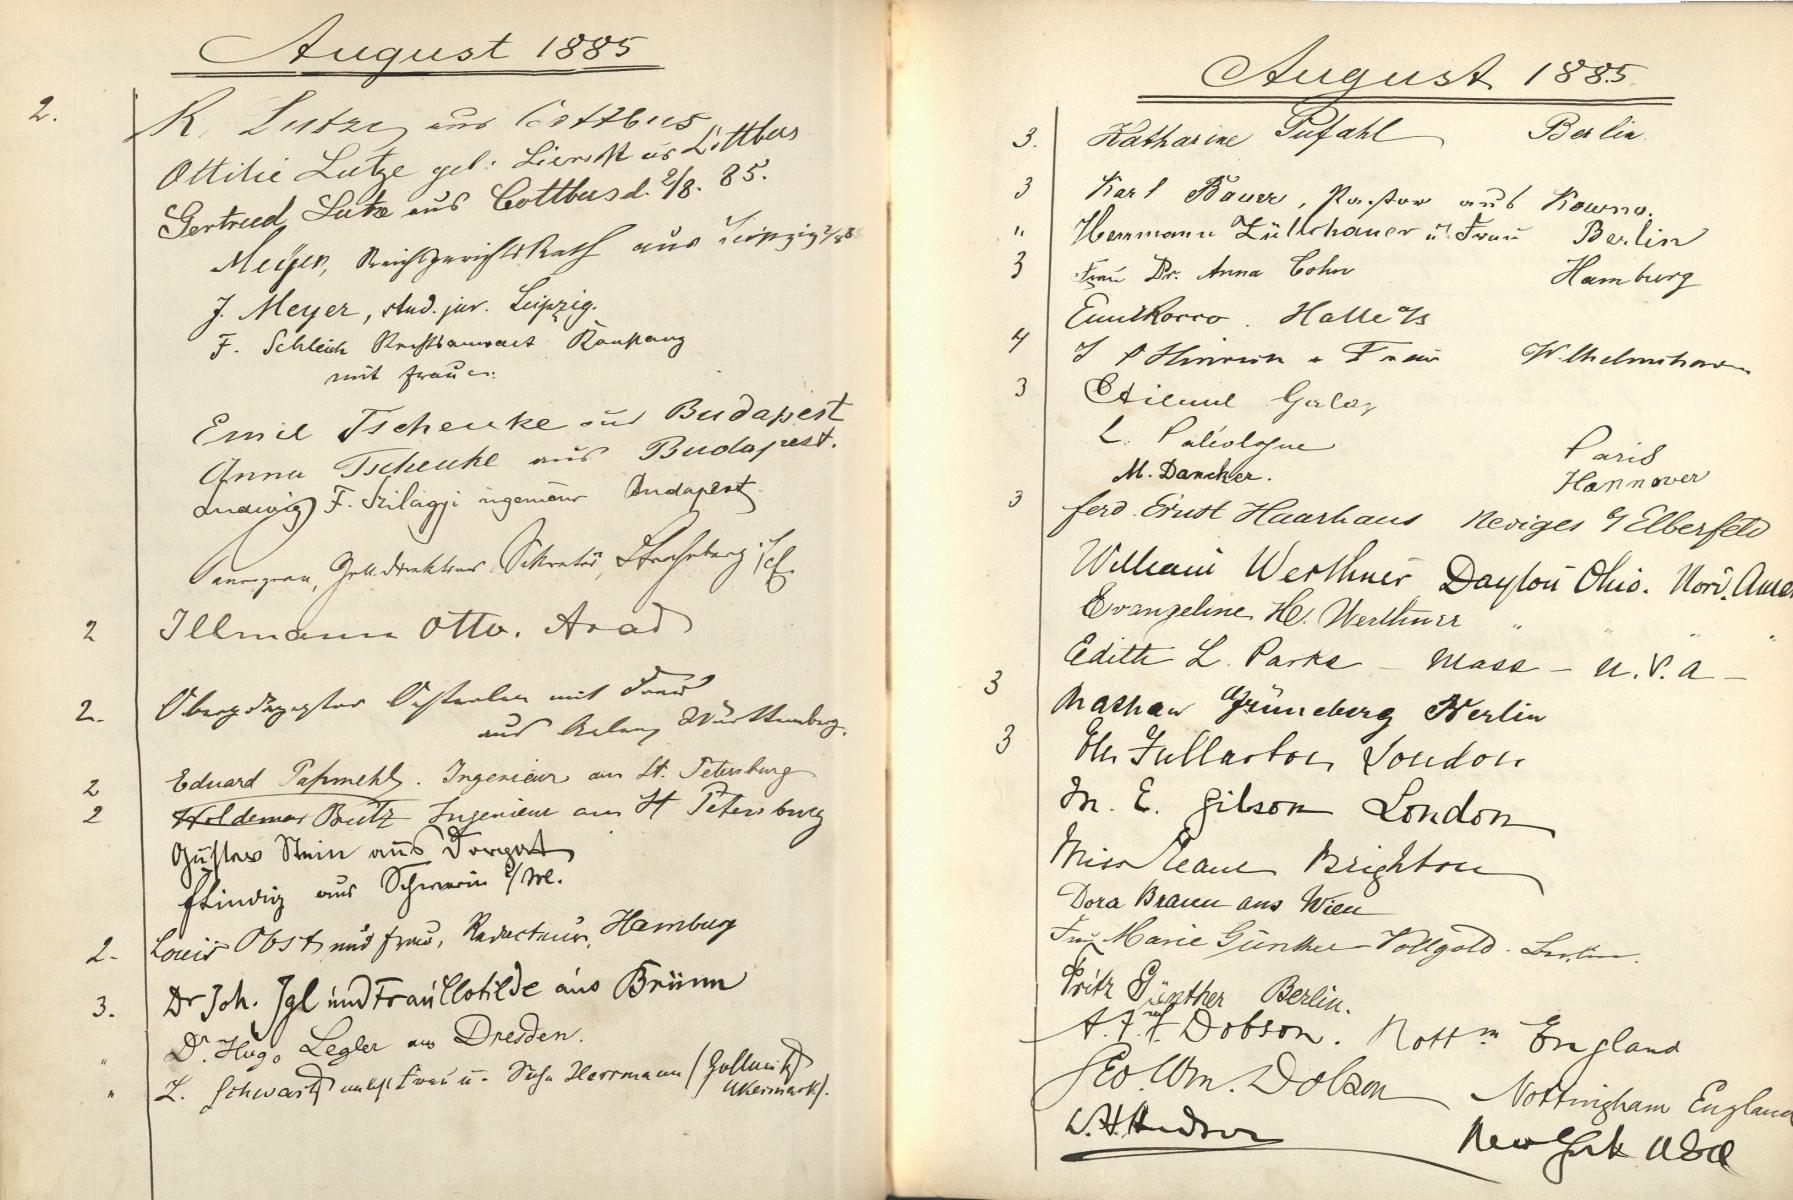 August 1885
2.
R. Lutze aus Cottbus
Ottilie Lutze geb: Liersch aus Cottbus
Gertrud Lutze aus Cottbus d. 2/8. 85.
Meyer, Reichsgerichts Rath aus Leipzig 2/8 85
J. Meyer, stud. jur. Leipzig.
F. Schleich Rechtsanwalt
mit Frau
Emil Tschenke aus Budapest
Anna Tschenke aus Budapest.
Ludwig F. Szilagyi ingenieur Budapest
Sekretär, Straßburg i/E.
2 Illmann Otto. Arad
2. mit Frau
aus Aalen, Württemberg.
2 Eduard Paßmehl. Ingenieur aus St. Petersburg
2 Woldemar Beutz Ingenieur aus St Petersburg
Gustav Stein aus Dorpat
aus Schwerin i/M.
2. Louis Obst und Frau, Redacteur, Hamburg
3. Dr Joh. Igl und Frau Clotilde aus Brünn
" Dr. Hugo Legler aus Dresden.
" L. Schwartz nebst Frau u. Sohn Herrmann (Gollmitz
Ukermark).
August 1885
3. Katharine Pufahl Berlin.
3 Karl Bauer, Pastor aus Kowno.
" Herrmann Züllchauer u. Frau Berlin
3 Frau Dr. Anna Cohn Hamburg
Emil Rocco. Halle a/s
4 Hinrich u Frau Wilhelmshaven
3 Etienne
L. Paléologue Paris
M. Dancker. Hannover
3 Ferd. Ernst Haarhaus Neviges b/ Elberfeld
William Werthner Dayton Ohio. Nord. Amer
Evangeline H. Werthner " " " "
Edith L. Parks - Mass - U.S.A -
3 Nathan Grüneberg Berlin
3 Fullarton London
M. E. Gibson London
Miss Brighton
Dora Braun aus Wien
Frau Marie Günther Vollgold. Berlin.
Fritz Günther Berlin.
A. F. Dobson. Nottm England
Geo. Wm. Dobson Nottingham England
W. H. Hudson New York USA